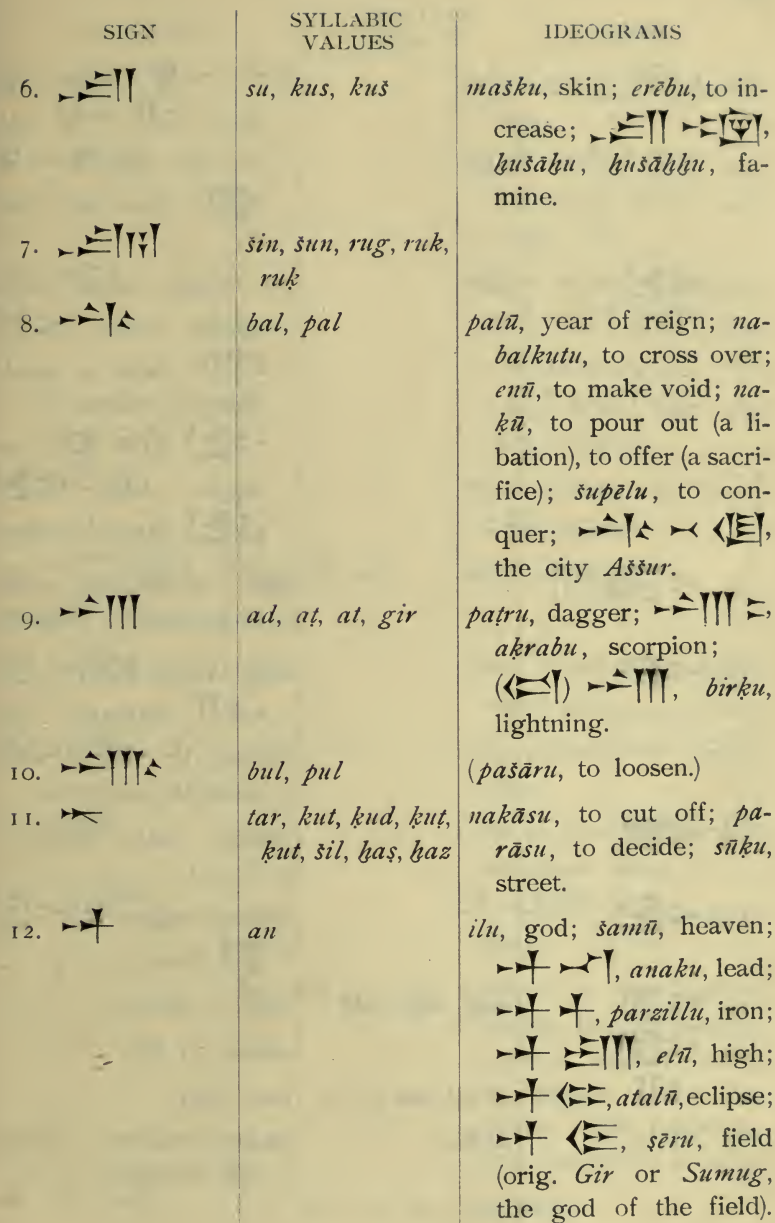 SIGN
SYLLABIC
VALUES
IDEOGRAMS
6. 𒋢
su, kus, kuš
mašku, skin; erēbu, to in-
crease; 𒋢 𒅥,
ḫušāḫu, ḫušāḫḫu, fa-
mine.
7.
šin, šun, rug, ruk,
ruḳ
8. 𒁄
bal, pal
palū, year of reign; na-
balkutu, to cross over;
enū, to make void; na-
ḳū, to pour out (a li-
bation), to offer (a sacri-
fice); šupēlu, to con-
quer; 𒁄 𒁁 𒆠,
the city Aššur.
9. 𒄈
ad, aṭ, at, gir
paṭru, dagger; 𒄈 𒋰,
aḳrabu, scorpion;
(𒉏) 𒄈, birḳu,
lightning.
10. 𒁔
bul, pul
(pašāru, to loosen.)
11. 𒋻
tar, kut, ḳud, ḳuṭ,
ḳut, šil, ḫaṣ, ḫaz
nakāsu, to cut off; pa-
rāsu, to decide; sūḳu,
street.
12. 𒀭
an
ilu, god; šamū, heaven;
𒀭 𒈾, anaku, lead;
𒀭 𒁇, parzillu, iron;
𒀭 𒋫, elū, high;
𒀭 𒈪, atalū, eclipse;
𒀭 𒄊, ṣēru, field
(orig. Gir or Sumug,
the god of the field).